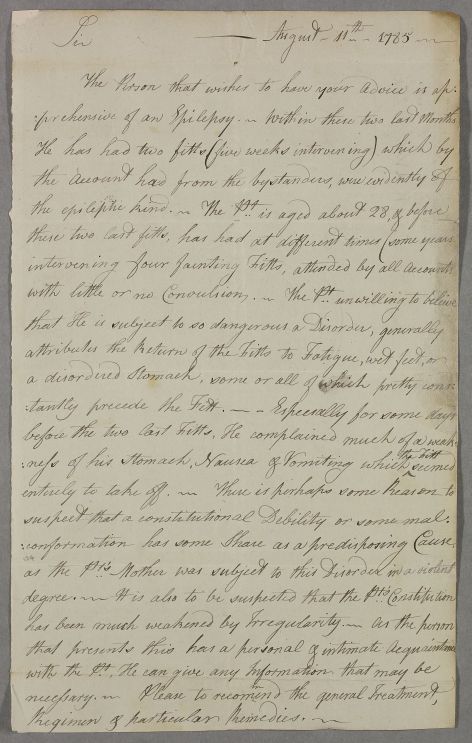 Sir August 11th 1785
The Person that wishes to have your Advice is ap:
:prehensive of an Epilepsy. Within these two last Months
He has had two fitts (five weeks intervening) which by
the Account had from the bystanders, were evidently of
the epileptic kind. The Pt. is aged about 28, & before
these two last fitts, has had at different times (some years
intervening four fainting Fitts, attended by all Accounts
with little or no Convulsion. The Pt. unwilling to believe
that He is subject to so dangerous a Disorder, generally
attributes the Return of the Fitts to Fatigue, wet feet, or
a disordered Stomach, some or all of which pretty cons:
:tantly precede the Fitt. Especially for some days
before the two last Fitts, He complained much of a weak:
:ness of his Stomach, Nausea & Vomiting which the Fitt seemed
entirely to take off. There is perhaps some Reason to
suspect that a constitutional Debility or some mal:
:conformation has some Share as a predisposing Cause,
as the Pts. Mother was subject to this Disorder in a violent
degree. It is also to be suspected that the Pts. Constitution
has been much weakened by Irregularity. As the person
that presents this has a personal & intimate Acquaintance
with the Pt. He can give any Information that may be
necessary. Please to recomend the general Treatment,
Regimen & particular Remedies.